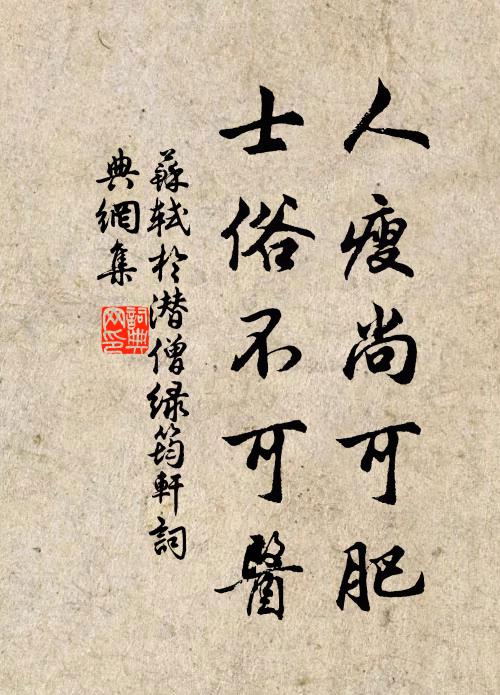 人瘦尚可肥
士俗不可醫
蘇軾於潛僧绿筠軒詞
典網集
詞典
网印